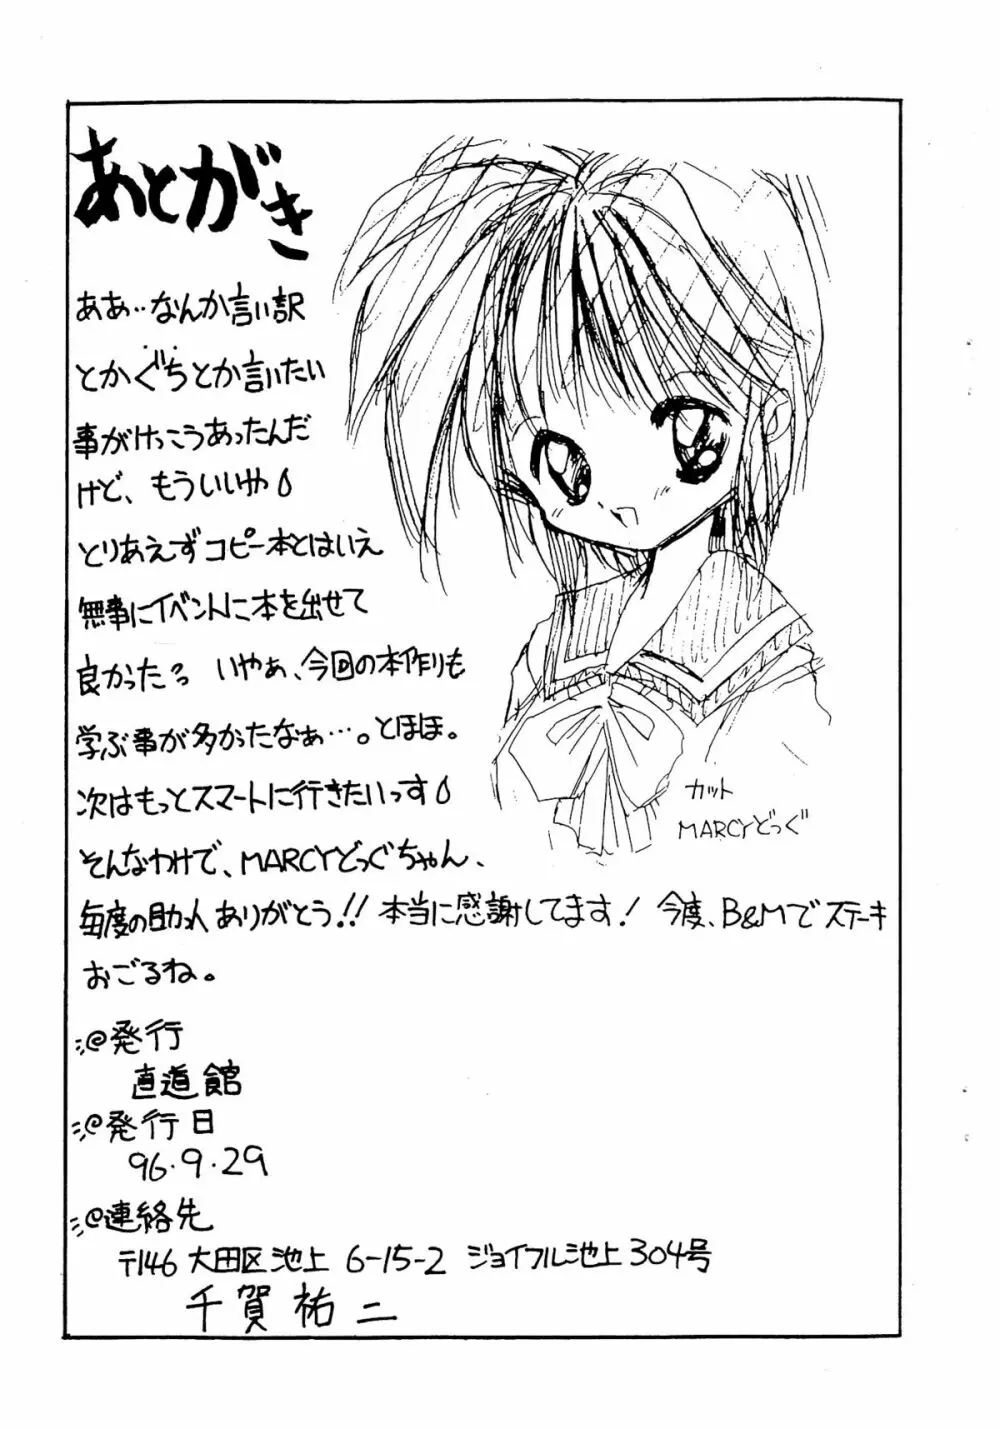 あとがき
ああ‥なんか言い訳
とかぐちとか言いたい
事がけっこうあったんだ
けど、もういいや
とりあえずコピー本とはいえ
無事にイベントに本を出せて
良かった
いやぁ、今回の本作りも
学ぶ事が多かったなぁ…。とほほ。
次はもっとスマートに行きたいっす
そんなわけで、MARCYどっぐちゃん、
毎度の助っ人ありがとう!! 本当に感謝してます! 今度、B&Mでステーキ
おごるね。
カット
MARCYどっぐ
@発行
直道館
@発行日
96・9・29
@連絡先
〒146 大田区池上 6-15-2 ジョイフル池上304号
千賀祐二